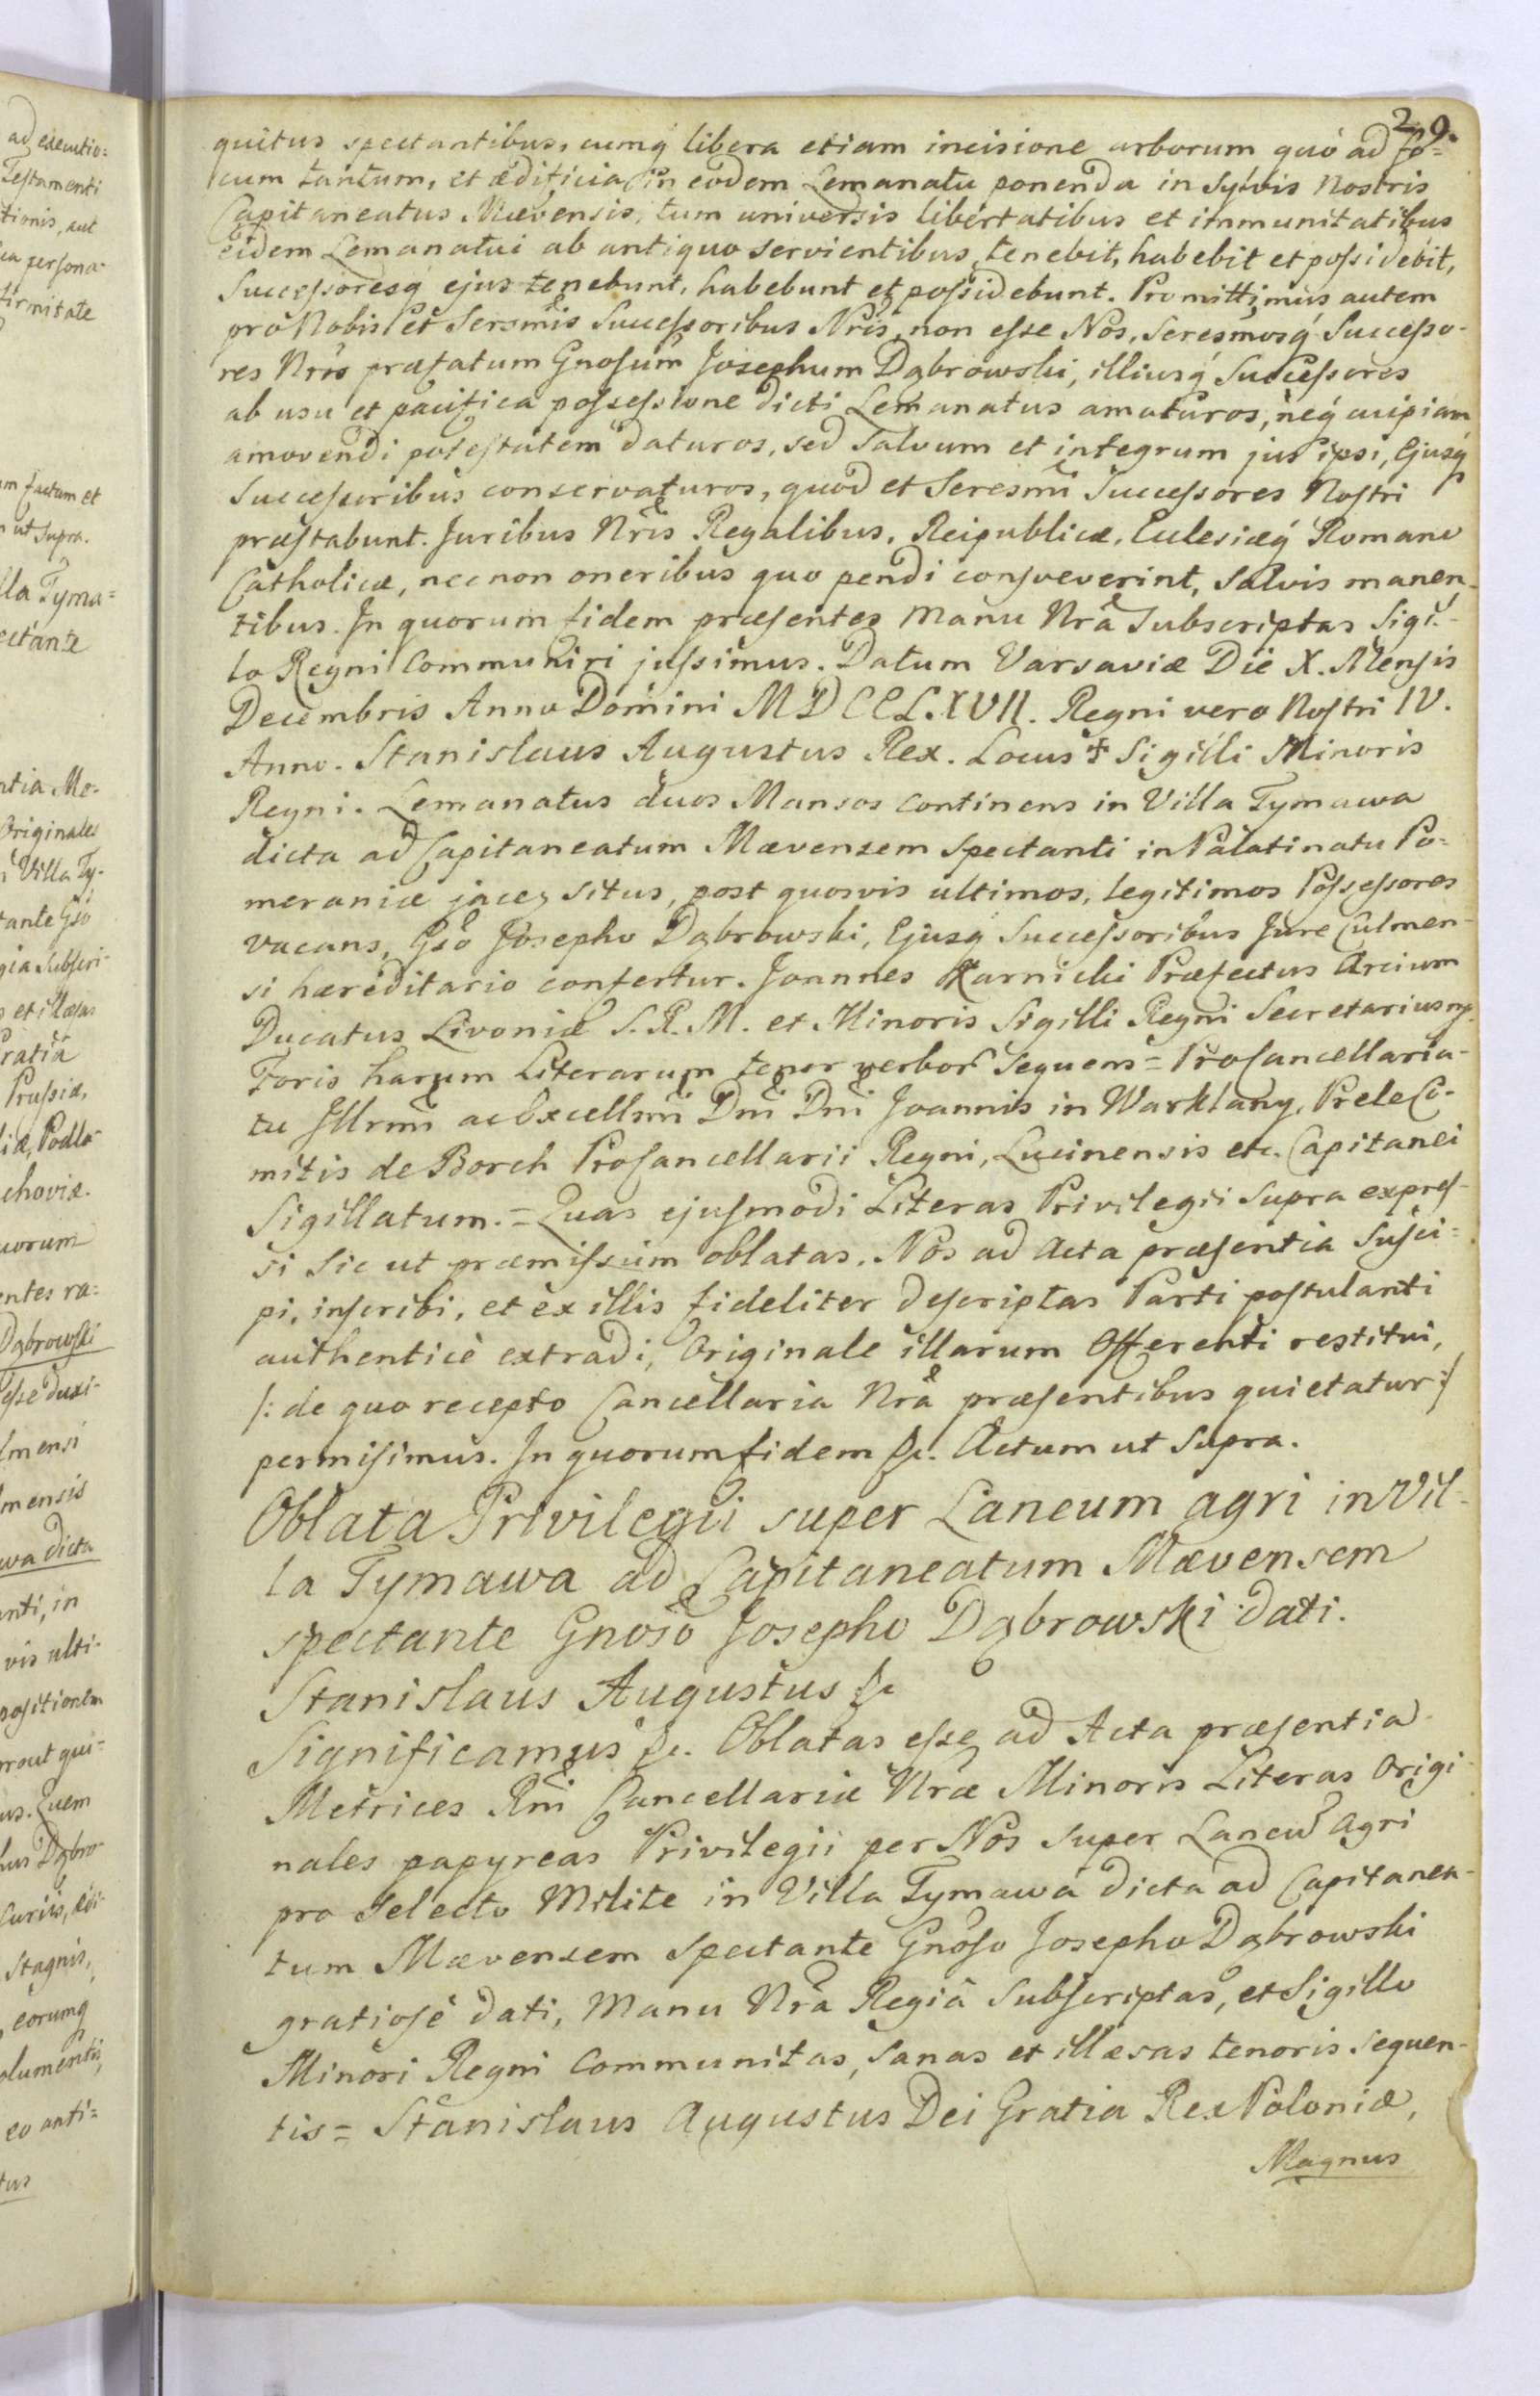 29.
quitus spectantibus, cumq́ libera etiam incisione arborum quò ad fo=
cum tantum, et ædificia in eodem Lemanatu ponenda in Sylvis Nostris
Capitaneatus Mævensis, tum universis libertatibus et immunitatibus
eidem Lemanatui ab antiquo servientibus, tenebit, habebit et possidebit,
Successoresq́ ejus tenebunt, habebunt et possidebunt. Promittimus autem
pro Nobis et Sersm̃is Successoribus Nr̃is, non esse Nos, Seresmosq́ Successo-
res Nrõs præfatum Gnosum Josephum Dąbrowski, illiusq́ Successores
ab usu et pacifica possessione dicti Lemanatus amoturos, neq́ cuipiam
amovendi potestatem daturos, sed salvum et integrum jus ipsi, Ejusq́
Successoribus conservaturos, quod et Seresmi Successores Nostri
præstabunt. Juribus Nr̃is Regalibus, Reipublicæ, Eclesiæq́ Romano
Catholicæ, nec non oneribus quo pendi consveverint, salvis manen-
tibus. In quorum fidem præsentes Manu Nr̃a Subscriptas Sigi-
lo Regni Communiri jussimus. Datum Varsaviæ Die X. Mensis
Decembris Anno Domini MDCCLXVII. Regni vero Nostri IV.
Anno. Stanislaus Augustus Rex. Locus ✝ Sigilli Minoris
Regni. Lemanatus duos Mansos continens in Villa Tymawa
dicta ad Capitaneatum Mævensem spectanti in Palatinatu Po=
meraniæ jacens situs, post quosvis ultimos, legitimos Possessores
vacans, Gsõ Josepho Dąbrowski, Ejusq́ Successoribus Jure Culmen-
si hæreditario confertur. Joannes Karnicki Præfectus Arcium
Ducatus Livoniæ S. R. M. et Minoris Sigilli Regni Secretarius mp.
Foris harum Literarum tenor verbor̃ sequens = Procancellaria-
tu Jllrmi ac Excellm̃i Dñi Dñi Joannis in Warklany, Prele Co-
mitis de Borch Procancellarii Regni, Lucinensis etc. Capitanei
Sigillatum. = Quas ejusmodi Literas Privilegii supra expres-
si sic ut præmissum oblatas, Nos ad Acta præsentia Susci=
pi, inscribi, et ex illis fideliter descriptas Parti postulanti
authenticè extradi, Originale illarum Offerenti restitui,
/: de quo recepto Cancellaria Nr̃a præsentibus quietatur :/
permisimus. In quorum fidem &c. Actum ut Supra.
Oblata Privilegii super Laneum agri in Vil-
la Tymawa ad Capitaneatum Mævensem
spectante Gnosõ Josepho Dąbrowski dati.
Stanislaus Augustus &c
Significamus &c. Oblatas esse ad Acta præsentia
Metrices Rñi Cancellariæ Nræ Minoris Literas Origi
nales papyreas Privilegii per Nos super Laneu᷃ Agri
pro Selecto Milite in Villa Tymawa dicta ad Capitanea-
tum Mævensem spectante Gnoso Josepho Dąbrowski
gratiosè dati, Manu Nr̃a Regiâ Subscriptas, et Sigillo
Minori Regni Communitas, sanas et illæsas tenoris sequen-
tis = Stanislaus Augustus Dei Gratia Rex Poloniæ,
Magnus